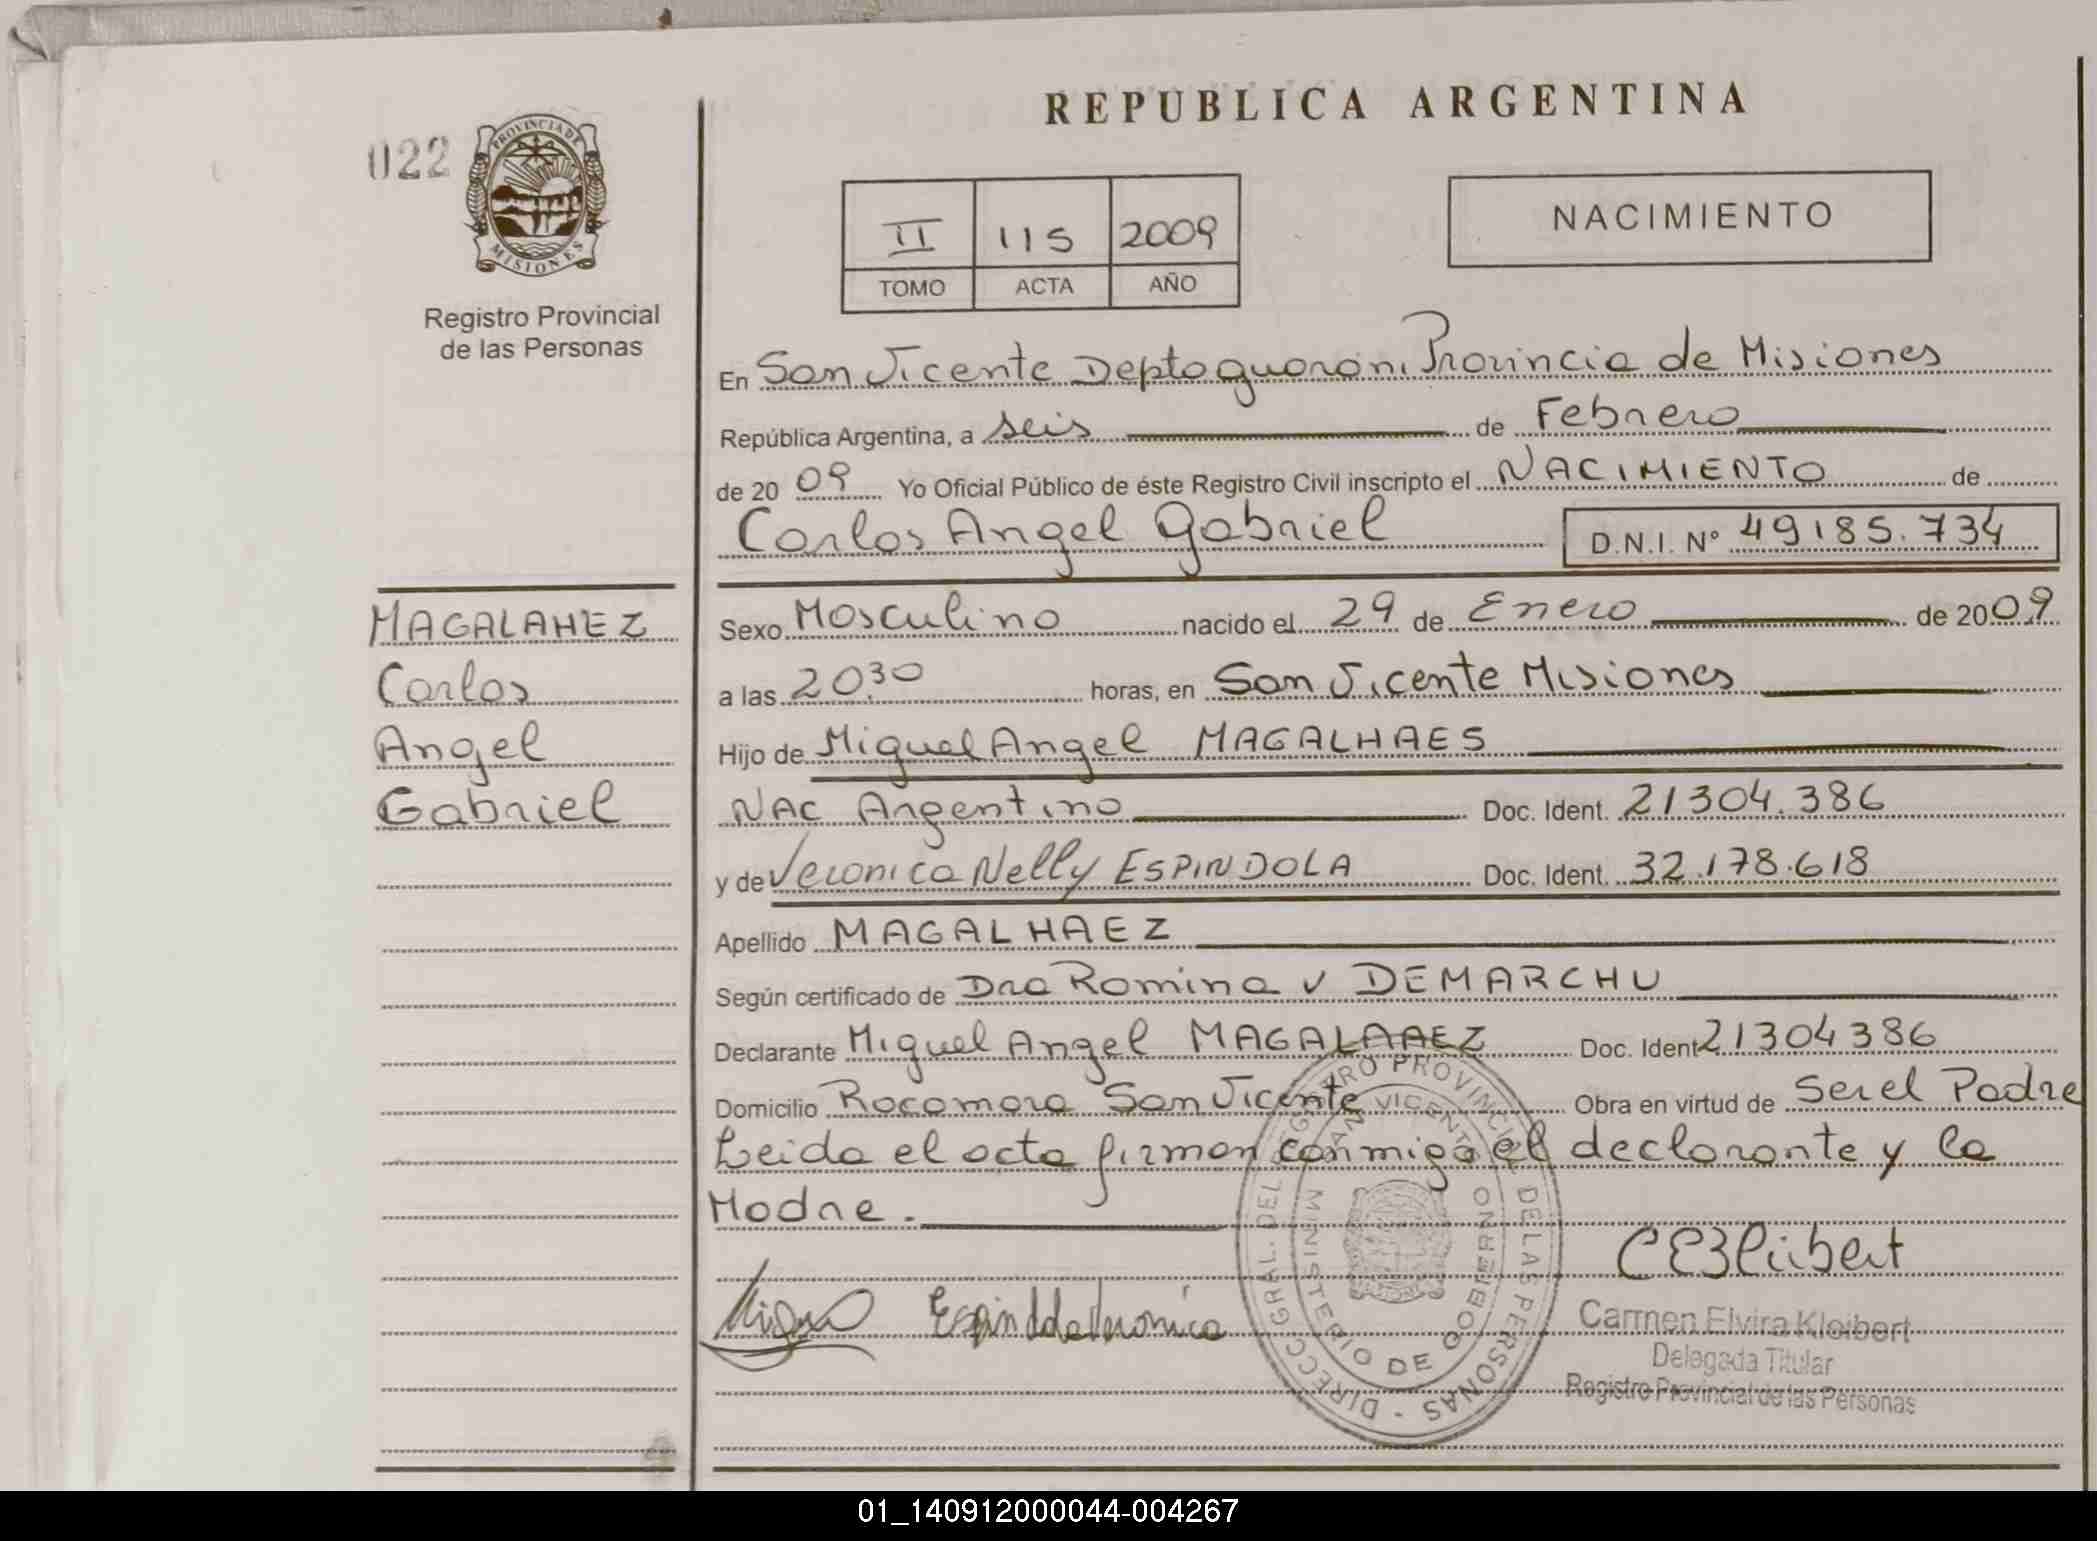 REPUBLICA ARGENTINA
022
PROVINCIA DE
MISIONES
Registro Provincial
de las Personas
II 115 2009
TOMO ACTA AÑO
NACIMIENTO
En San Vicente Depto guarani Provincia de Misiones
República Argentina, a seis de Febrero
de 2009 Yo Oficial Público de éste Registro Civil inscripto el NACIMIENTO de
Carlos Angel Gabriel D.N.I. Nº 49185.734
MAGALAHEZ
Carlos
Angel
Gabriel
Sexo Masculino nacido el 29 de Enero de 2009
a las 20.30 horas, en San Vicente Misiones
Hijo de Miguel Angel MAGALHAES
NAC Argentino Doc. Ident. 21304.386
y de Veronica Nelly ESPINDOLA Doc. Ident. 32.178.618
Apellido MAGALHAEZ
Según certificado de Dra Romina V DEMARCHU
Declarante Miguel Angel MAGALAAEZ Doc. Ident 21304386
Domicilio Rocamora San Vicente Obra en virtud de Ser el Padre
Leida el acta firman conmigo el declarante y la
Madre.
DIRECC. GRAL. DEL REGISTRO PROVINCIAL DE LAS PERSONAS -
SAN VICENTE
MINISTERIO DE GOBIERNO
Carmen Elvira Kleibert
Delegada Titular
Registro Provincial de las Personas
01_140912000044-004267